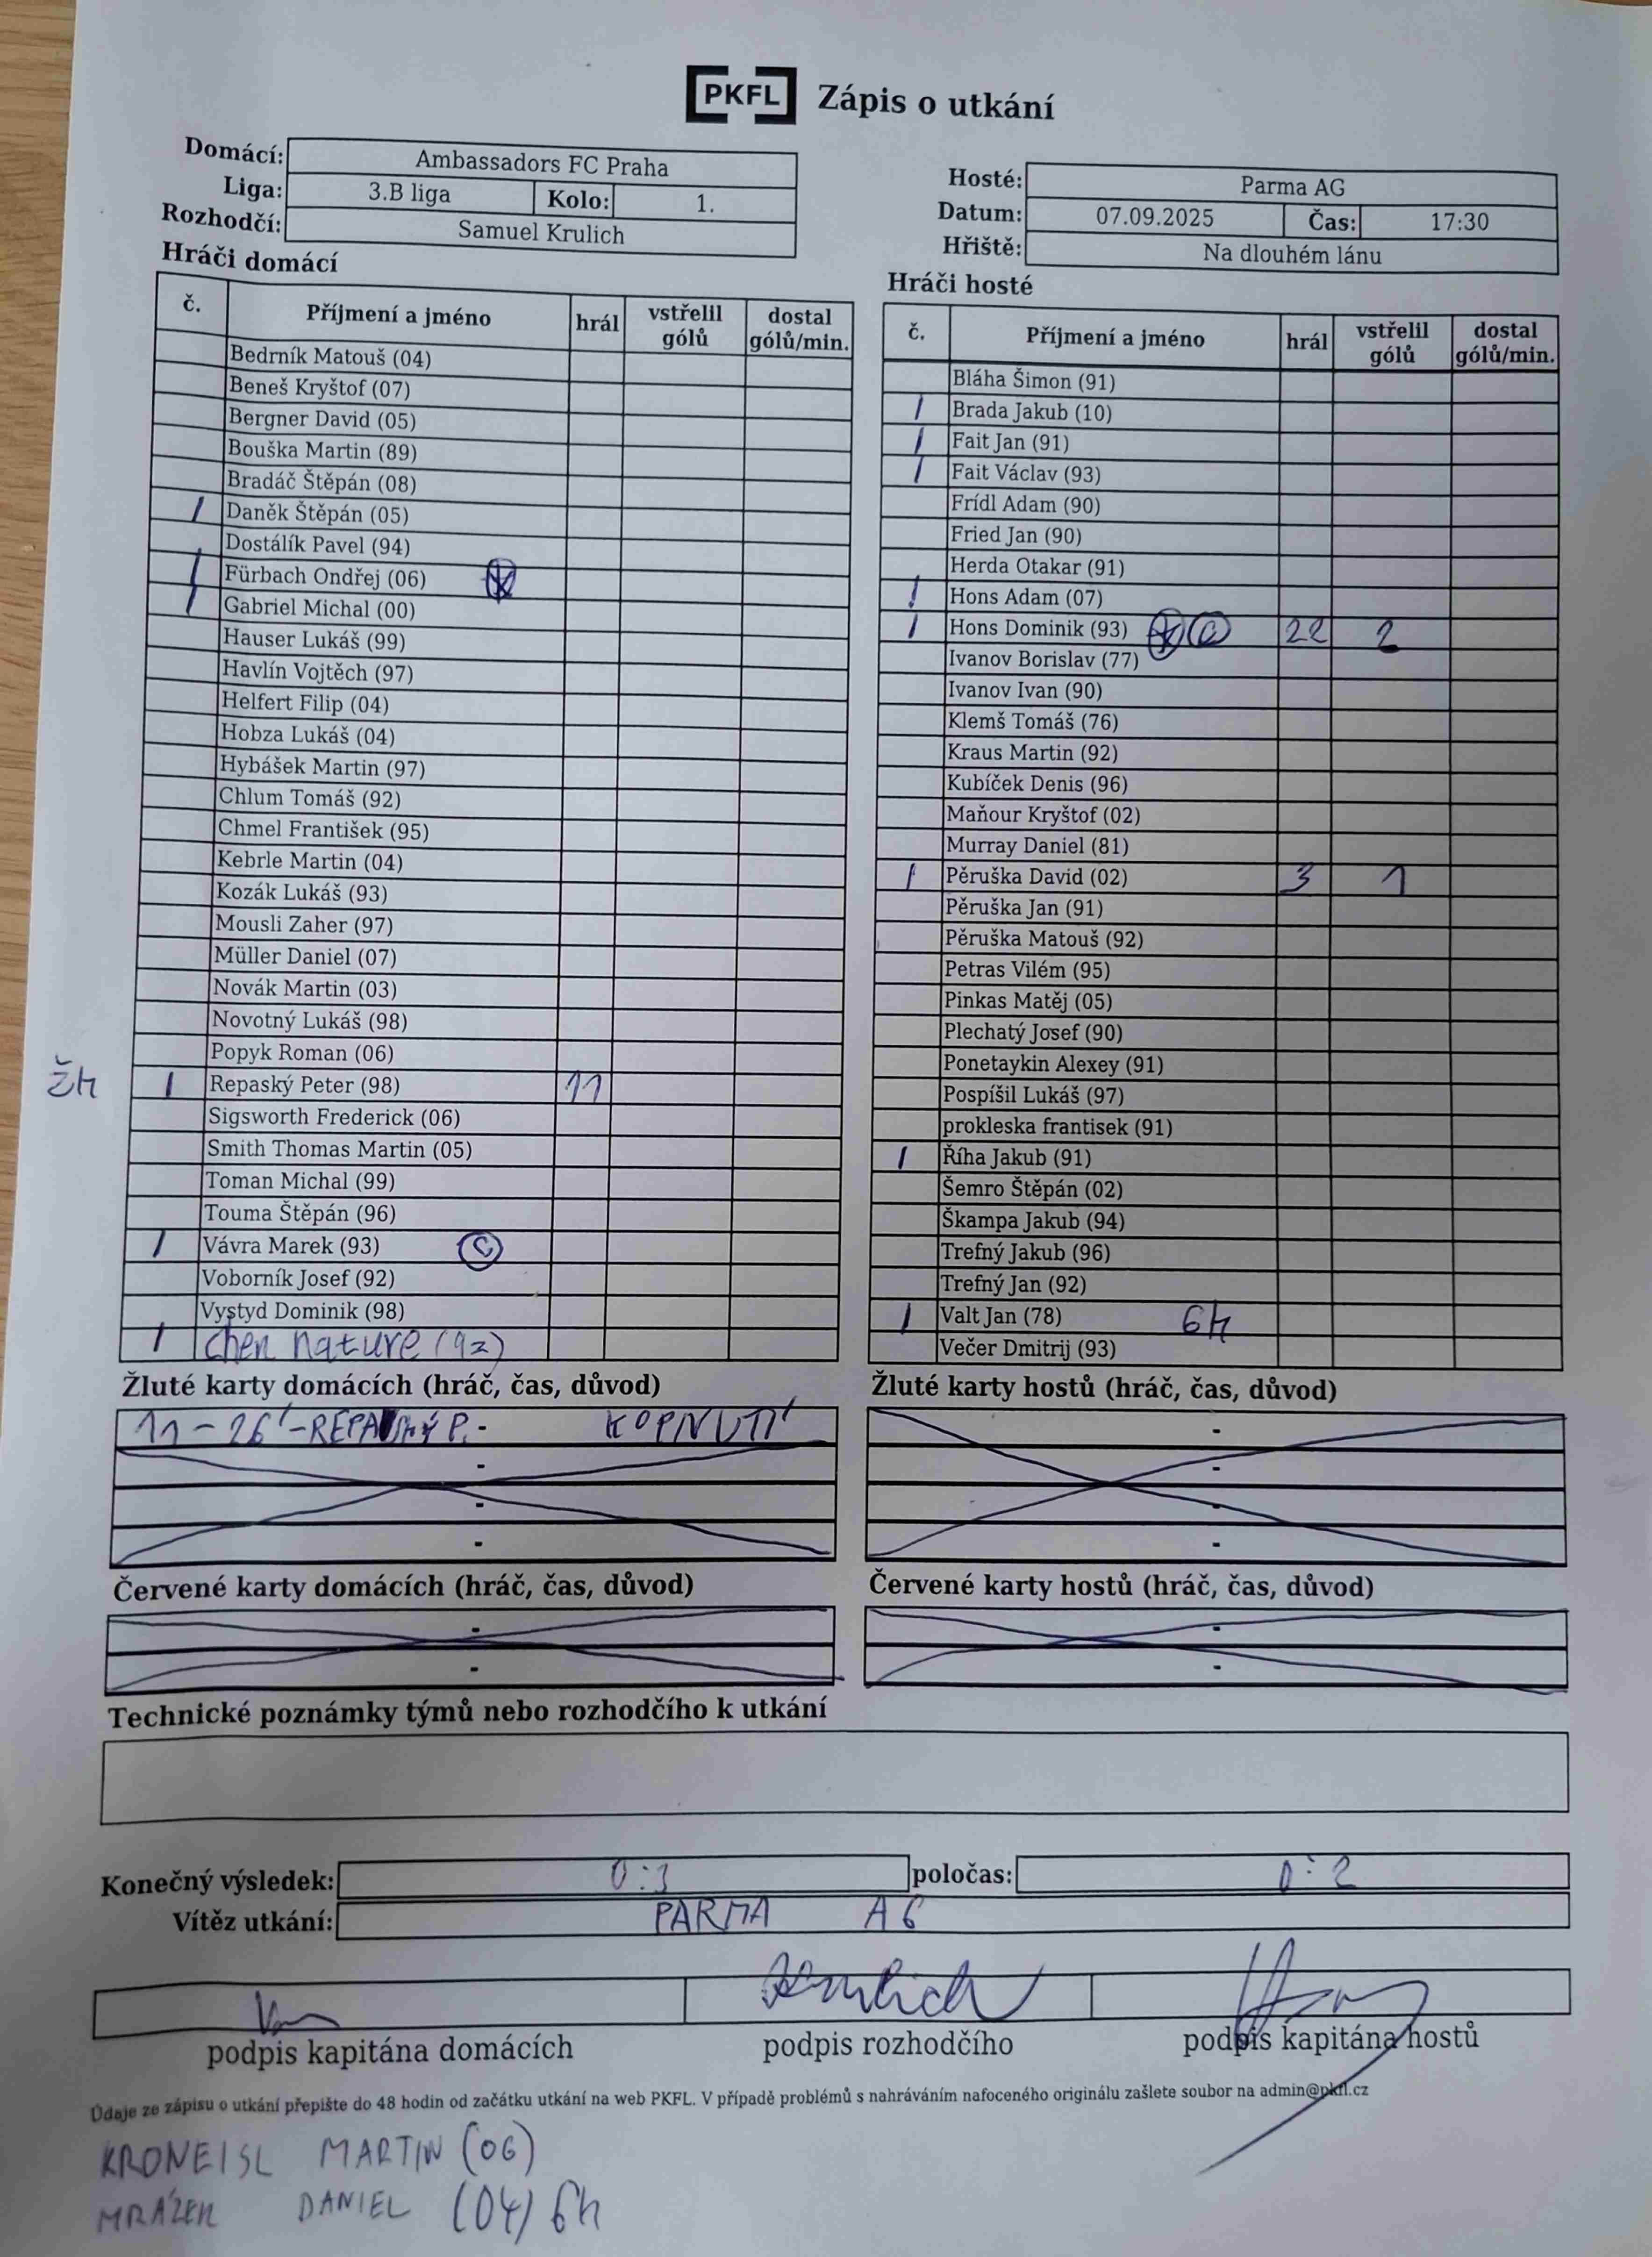 PKFL Zápis o utkání
Domácí: Ambassadors FC Praha
Liga: 3.B liga Kolo: 1.
Rozhodčí: Samuel Krulich
Hosté: Parma AG
Datum: 07.09.2025 Čas: 17:30
Hřiště: Na dlouhém lánu
Hráči domácí
č. Příjmení a jméno hrál vstřelil gólů dostal gólů/min.
Bedrník Matouš (04)
Beneš Kryštof (07)
Bergner David (05)
Bouška Martin (89)
Bradáč Štěpán (08)
/ Daněk Štěpán (05)
Dostálík Pavel (94)
/ Fürbach Ondřej (06)
/ Gabriel Michal (00)
Hauser Lukáš (99)
Havlín Vojtěch (97)
Helfert Filip (04)
Hobza Lukáš (04)
Hybášek Martin (97)
Chlum Tomáš (92)
Chmel František (95)
Kebrle Martin (04)
Kozák Lukáš (93)
Mousli Zaher (97)
Müller Daniel (07)
Novák Martin (03)
Novotný Lukáš (98)
Popyk Roman (06)
ŽK / Repaský Peter (98) 11
Sigsworth Frederick (06)
Smith Thomas Martin (05)
Toman Michal (99)
Touma Štěpán (96)
/ Vávra Marek (93) C
Voborník Josef (92)
Vystyd Dominik (98)
/ Chen nature (92)
Hráči hosté
č. Příjmení a jméno hrál vstřelil gólů dostal gólů/min.
Bláha Šimon (91)
/ Brada Jakub (10)
/ Fait Jan (91)
/ Fait Václav (93)
Frídl Adam (90)
Fried Jan (90)
Herda Otakar (91)
/ Hons Adam (07)
/ Hons Dominik (93) C 22 2
Ivanov Borislav (77)
Ivanov Ivan (90)
Klemš Tomáš (76)
Kraus Martin (92)
Kubíček Denis (96)
Maňour Kryštof (02)
Murray Daniel (81)
/ Pěruška David (02) 3 1
Pěruška Jan (91)
Pěruška Matouš (92)
Petras Vilém (95)
Pinkas Matěj (05)
Plechatý Josef (90)
Ponetaykin Alexey (91)
Pospíšil Lukáš (97)
prokleska frantisek (91)
/ Říha Jakub (91)
Šemro Štěpán (02)
Škampa Jakub (94)
Trefný Jakub (96)
Trefný Jan (92)
/ Valt Jan (78) GK
Večer Dmitrij (93)
Žluté karty domácích (hráč, čas, důvod)
11 - 26' - REPASKÝ P. - KOPNUTÍ
-
-
-
Žluté karty hostů (hráč, čas, důvod)
-
-
-
-
Červené karty domácích (hráč, čas, důvod)
-
-
Červené karty hostů (hráč, čas, důvod)
-
-
Technické poznámky týmů nebo rozhodčího k utkání
Konečný výsledek: 0:3 poločas: 0:2
Vítěz utkání: PARMA AG
Krulich
podpis kapitána domácích podpis rozhodčího podpis kapitána hostů
Údaje ze zápisu o utkání přepište do 48 hodin od začátku utkání na web PKFL. V případě problémů s nahráváním nafoceného originálu zašlete soubor na admin@pkfl.cz
KRONEISL MARTIN (06)
MRÁZEK DANIEL (04) GK